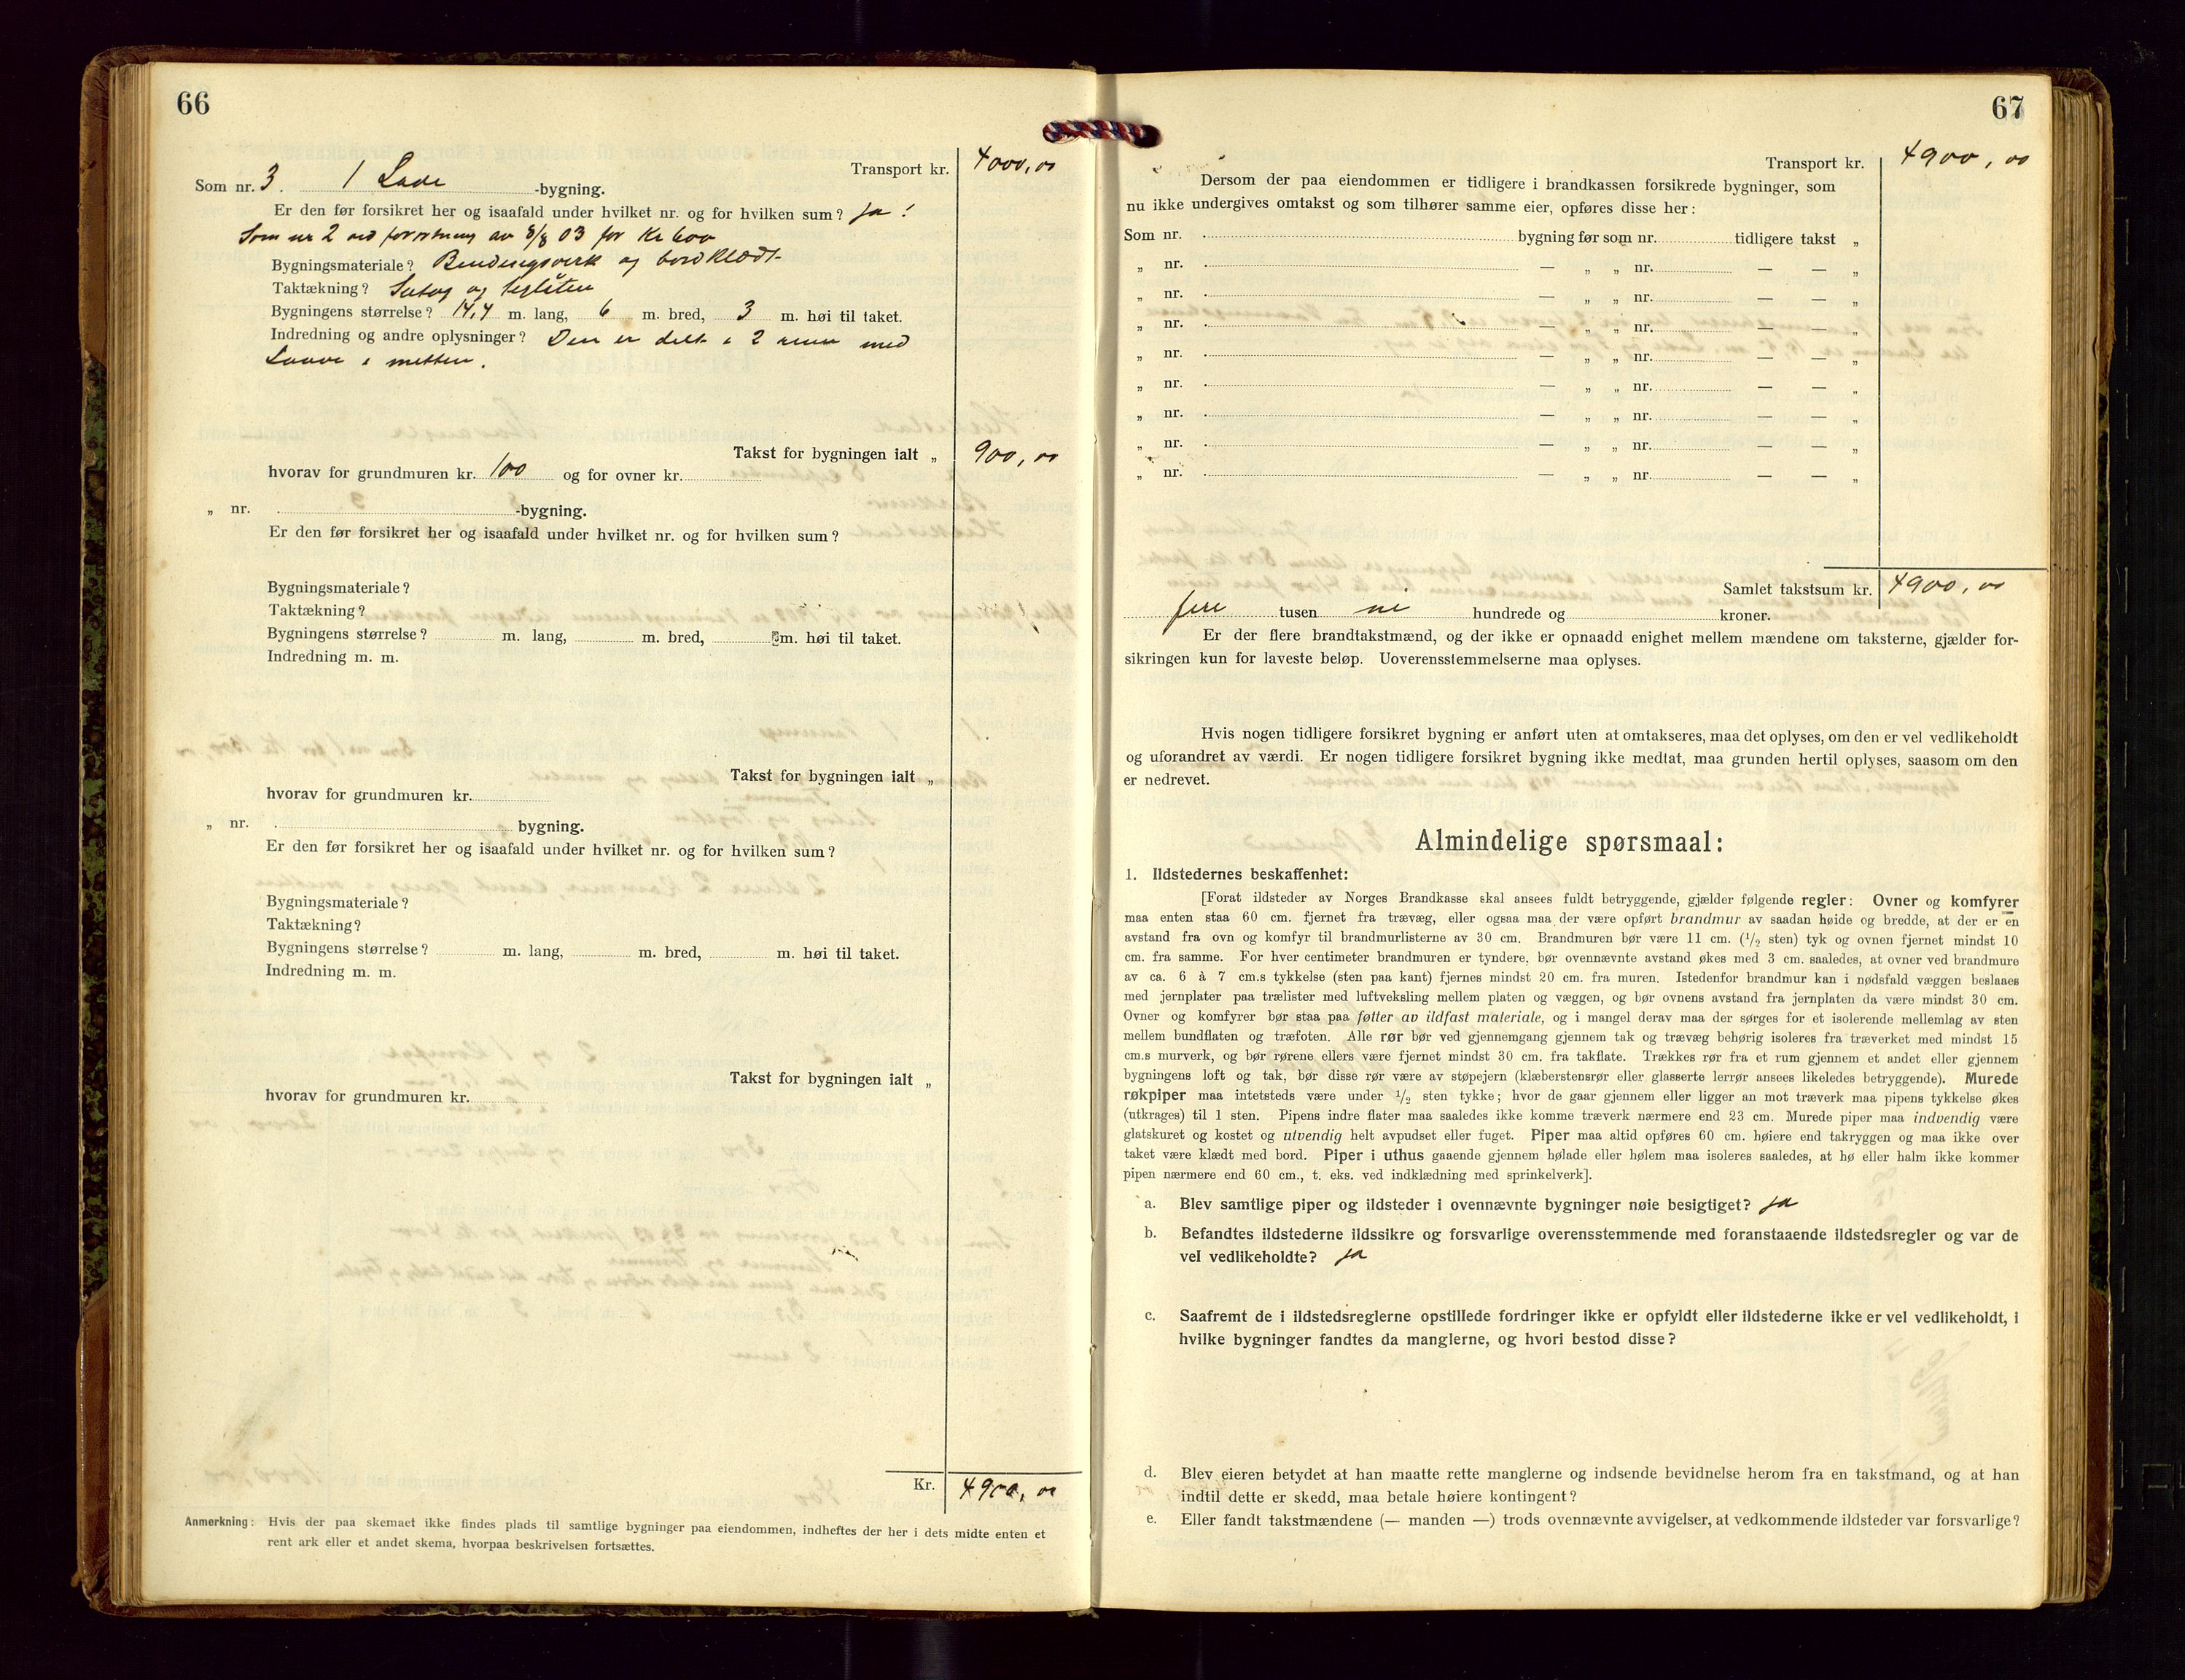 66
Transport kr. 4000,00
Som nr. 3. 1 Lade -bygning.
Er den før forsikret her og isaafald under hvilket nr. og for hvilken sum? ja!
Som nr 2 ved forretning av 8/8 03 for Kr 600
Bygningsmateriale? Bindingsverk og bordklædt
Taktækning? Sutag og teglsten
Bygningens størrelse? 14,4 m. lang, 6 m. bred, 3 m. høi til taket.
Indredning og andre oplysninger? Den er delt i 2 rum med
Laave i mitten.
Takst for bygningen ialt „ 900,00
hvorav for grundmuren kr. 100 og for ovner kr.
„ nr. -bygning.
Er den før forsikret her og isaafald under hvilket nr. og for hvilken sum?
Bygningsmateriale?
Taktækning?
Bygningens størrelse? m. lang, m. bred, m. høi til taket.
Indredning m. m.
Takst for bygningen ialt „
hvorav for grundmuren kr.
„ nr. bygning.
Er den før forsikret her og isaafald under hvilket nr. og for hvilken sum?
Bygningsmateriale?
Taktækning?
Bygningens størrelse? m. lang, m. bred, m. høi til taket.
Indredning m. m.
Takst for bygningen ialt „
hvorav for grundmuren kr.
Kr. 4900,00
Anmerkning: Hvis der paa skemaet ikke findes plads til samtlige bygninger paa eiendommen, indheftes der her i dets midte enten et
rent ark eller et andet skema, hvorpaa beskrivelsen fortsættes.
67
Transport kr. 4900,00
Dersom der paa eiendommen er tidligere i brandkassen forsikrede bygninger, som
nu ikke undergives omtakst og som tilhører samme eier, opføres disse her:
Som nr. bygning før som nr. tidligere takst „
„ nr. — „ „ nr. — — „
„ nr. — „ „ nr. — — „
„ nr. — „ „ nr. — — „
„ nr. — „ „ nr. — — „
„ nr. — „ „ nr. — — „
„ nr. — „ „ nr. — — „
„ nr. — „ „ nr. — — „
„ nr. — „ „ nr. — — „
Samlet takstsum kr. 4900,00
fire tusen ni hundrede og kroner.
Er der flere brandtakstmænd, og der ikke er opnaadd enighet mellem mændene om taksterne, gjælder for-
sikringen kun for laveste beløp. Uoverensstemmelserne maa oplyses.
Hvis nogen tidligere forsikret bygning er anført uten at omtakseres, maa det oplyses, om den er vel vedlikeholdt
og uforandret av værdi. Er nogen tidligere forsikret bygning ikke medtat, maa grunden hertil oplyses, saasom om den
er nedrevet.
Almindelige spørsmaal:
1. Ildstedernes beskaffenhet:
[Forat ildsteder av Norges Brandkasse skal ansees fuldt betryggende, gjælder følgende regler: Ovner og komfyrer
maa enten staa 60 cm. fjernet fra trævæg, eller ogsaa maa der være opført brandmur av saadan høide og bredde, at der er en
avstand fra ovn og komfyr til brandmurlisterne av 30 cm. Brandmuren bør være 11 cm. (1/2 sten) tyk og ovnen fjernet mindst 10
cm. fra samme. For hver centimeter brandmuren er tyndere, bør ovennævnte avstand økes med 3 cm. saaledes, at ovner ved brandmure
av ca. 6 à 7 cm.s tykkelse (sten paa kant) fjernes mindst 20 cm. fra muren. Istedenfor brandmur kan i nødsfald væggen beslaaes
med jernplater paa trælister med luftveksling mellem platen og væggen, og bør ovnens avstand fra jernplaten da være mindst 30 cm.
Ovner og komfyrer bør staa paa føtter av ildfast materiale, og i mangel derav maa der sørges for et isolerende mellemlag av sten
mellem bundflaten og træfoten. Alle rør bør ved gjennemgang gjennem tak og trævæg behørig isoleres fra træverket med mindst 15
cm.s murverk, og bør rørene ellers være fjernet mindst 30 cm. fra takflate. Trækkes rør fra et rum gjennem et andet eller gjennem
bygningens loft og tak, bør disse rør være av støpejern (klæberstensrør eller glasserte lerrør ansees likeledes betryggende). Murede
røkpiper maa intetsteds være under 1/2 sten tykke; hvor de gaar gjennem eller ligger an mot træverk maa pipens tykkelse økes
(utkrages) til 1 sten. Pipens indre flater maa saaledes ikke komme træverk nærmere end 23 cm. Murede piper maa indvendig være
glatskuret og kostet og utvendig helt avpudset eller fuget. Piper maa altid opføres 60 cm. høiere end takryggen og maa ikke over
taket være klædt med bord. Piper i uthus gaaende gjennem hølade eller hølem maa isoleres saaledes, at hø eller halm ikke kommer
pipen nærmere end 60 cm., t. eks. ved indklædning med sprinkelverk].
a. Blev samtlige piper og ildsteder i ovennævnte bygninger nøie besigtiget? ja
b. Befandtes ildstederne ildssikre og forsvarlige overensstemmende med foranstaaende ildstedsregler og var de
vel vedlikeholdte? ja
c. Saafremt de i ildstedsreglerne opstillede fordringer ikke er opfyldt eller ildstederne ikke er vel vedlikeholdt, i
hvilke bygninger fandtes da manglerne, og hvori bestod disse?
d. Blev eieren betydet at han maatte rette manglerne og indsende bevidnelse herom fra en takstmand, og at han
indtil dette er skedd, maa betale høiere kontingent?
e. Eller fandt takstmændene (— manden —) trods ovennævnte avvigelser, at vedkommende ildsteder var forsvarlige?